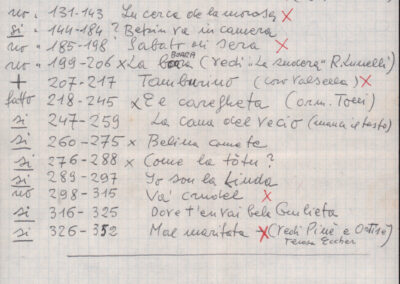 no " 131-143 La cerca de la morosa X
si " 144-184 ? Betsin va in camera
no " 185-198 Sabato di sera X
no " 199-206 x La BOACA (vedi "La smicera" R. Lunelli)
+ 207-217 Tamburino (coro Valsella) X
fatto 218-245 x E e caregheta (orm. Toeni)
si 247-259 La cana del vecio (manca il testo)
si 260-275 x Belina comete
si 276-288 x Come la tótu ?
si 289-297 Yo son la linda
no 298-315 Va' crudel X
si 316-325 Dove t'en vai bela Giulieta
si 326-352 Mal maritata X (vedi Pinè e
Teresa Eccher